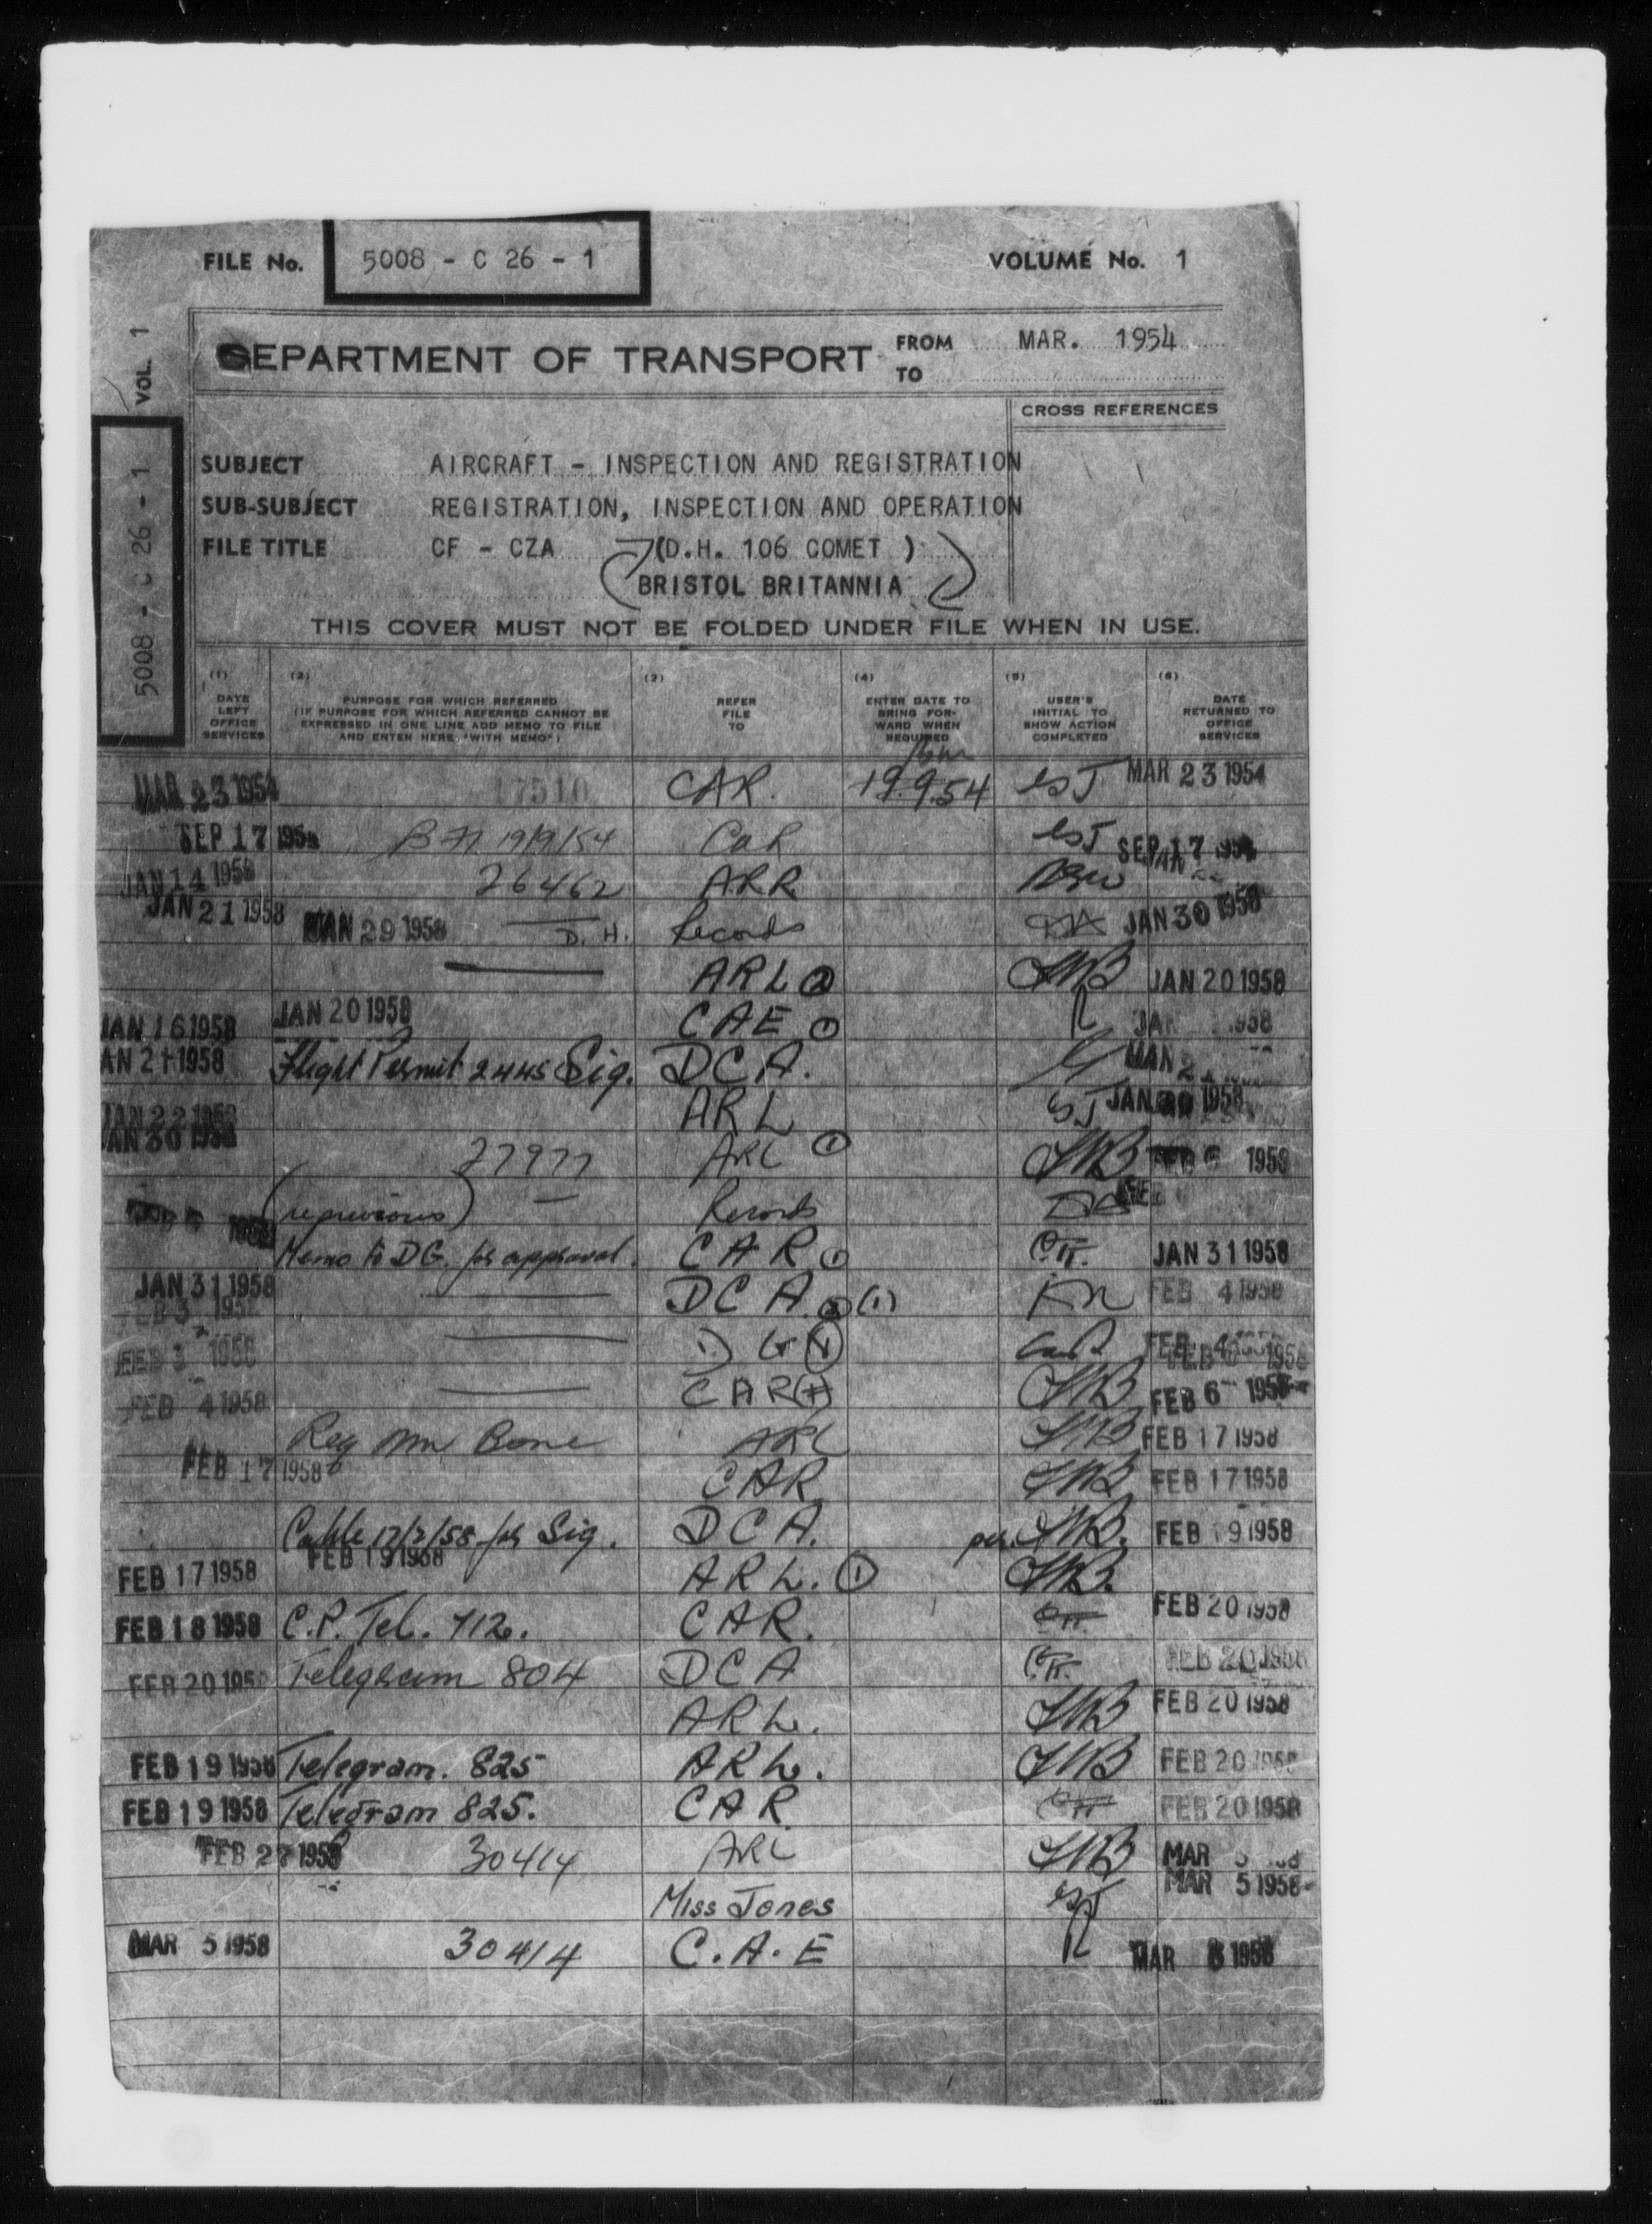 FILE No. 5008 - C 26 - 1 VOLUME No. 1
VOL. 1
5008 - C 26 - 1
DEPARTMENT OF TRANSPORT
FROM MAR. 1954
TO
CROSS REFERENCES
SUBJECT AIRCRAFT - INSPECTION AND REGISTRATION
SUB-SUBJECT REGISTRATION, INSPECTION AND OPERATION
FILE TITLE CF - CZA (D.H. 106 COMET )
BRISTOL BRITANNIA
THIS COVER MUST NOT BE FOLDED UNDER FILE WHEN IN USE.
(1) DATE LEFT OFFICE SERVICES
(2) PURPOSE FOR WHICH REFERRED (IF PURPOSE FOR WHICH REFERRED CANNOT BE EXPRESSED IN ONE LINE ADD MEMO TO FILE AND ENTER HERE, "WITH MEMO")
(3) REFER FILE TO
(4) ENTER DATE TO BRING FORWARD WHEN REQUIRED
(5) USER'S INITIAL TO SHOW ACTION COMPLETED
(6) DATE RETURNED TO OFFICE SERVICES
MAR 23 1954 17510 CAR. 19.9.54 MAR 23 1954
SEP 17 195 19/9/54 CAR SEP 17
JAN 14 1958 26462 ARR
JAN 21 1958 JAN 29 1958 D.H. Records JAN 30 1958
ARL 2 JMB JAN 20 1958
JAN 16 1958 JAN 20 1958 CAE 1 1958
JAN 21 1958 Flight Permit 2445 Sig. DCA.
JAN 22 1958 ARL JAN 30 1958
JAN 30 1958 27977 ARL 1 JMB FEB 6 1958
Records FEB
Memo to DG. for approval. CAR 1 JAN 31 1958
JAN 31 1958 DCA. 2 (1) FEB 4 1958
FEB 3 1958
FEB 3 1958 DG 1 FEB 4
FEB 4 1958 CAR JMB FEB 6 1958
Req Mr Bone ARL JMB FEB 17 1958
FEB 17 1958 CAR JMB FEB 17 1958
Cable 17/2/58 for Sig. DCA. per. JMB. FEB 19 1958
FEB 17 1958 FEB 19 1958 ARL. 1 JMB.
FEB 18 1958 C.P. Tel. 712. CAR. FEB 20 1958
FEB 20 195 Telegram 804 DCA FEB 20 1958
ARL. JMB FEB 20 1958
FEB 19 1958 Telegram. 825 ARL. JMB FEB 20 1958
FEB 19 1958 Telegram 825. CAR FEB 20 1958
FEB 27 1958 30414 ARL JMB MAR
Miss Jones MAR 5 1958
MAR 5 1958 30414 C.A.E MAR 1958